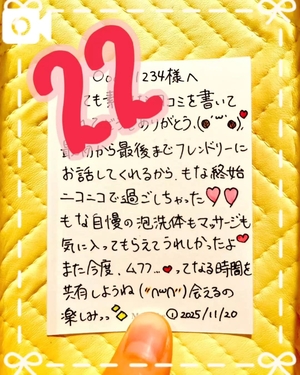 22
1234様へ
ても
コミを書いて
ありがとう、(●´ω`●),,
最後までフレンドリーに
お話してくれるから、もな終始
ニコニコで過ごしちゃった
もな自慢の泡洗体もマッサージも
気に入ってもらえてうれしかったよ
また今度、ムフフ…❤ってなる時間を
共有しようね("∩ω∩")会えるの
楽しみっっ
①2025/11/20